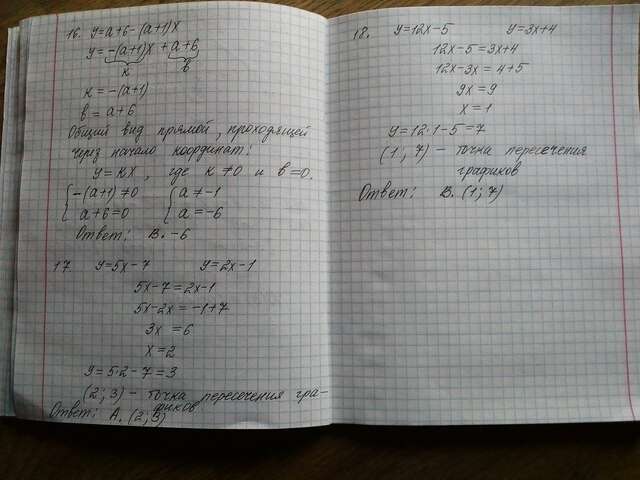 16. y=a+6-(a+1)x
y=-(a+1)x+a+6
к в
к=-(a+1)
в=a+6
Общий вид прямой, проходящей
через начало координат:
y=кx, где к≠0 и в=0.
{-(a+1)≠0 {a≠-1
{a+6=0 {a=-6
Ответ: В. -6
17. y=5x-7 y=2x-1
5x-7=2x-1
5x-2x=-1+7
3x=6
x=2
y=5·2-7=3
(2;3) - точка пересечения гра-
фиков
Ответ: А. (2;3)
18. y=12x-5 y=3x+4
12x-5=3x+4
12x-3x=4+5
9x=9
x=1
y=12·1-5=7
(1;7) - точка пересечения
графиков
Ответ: В. (1;7)